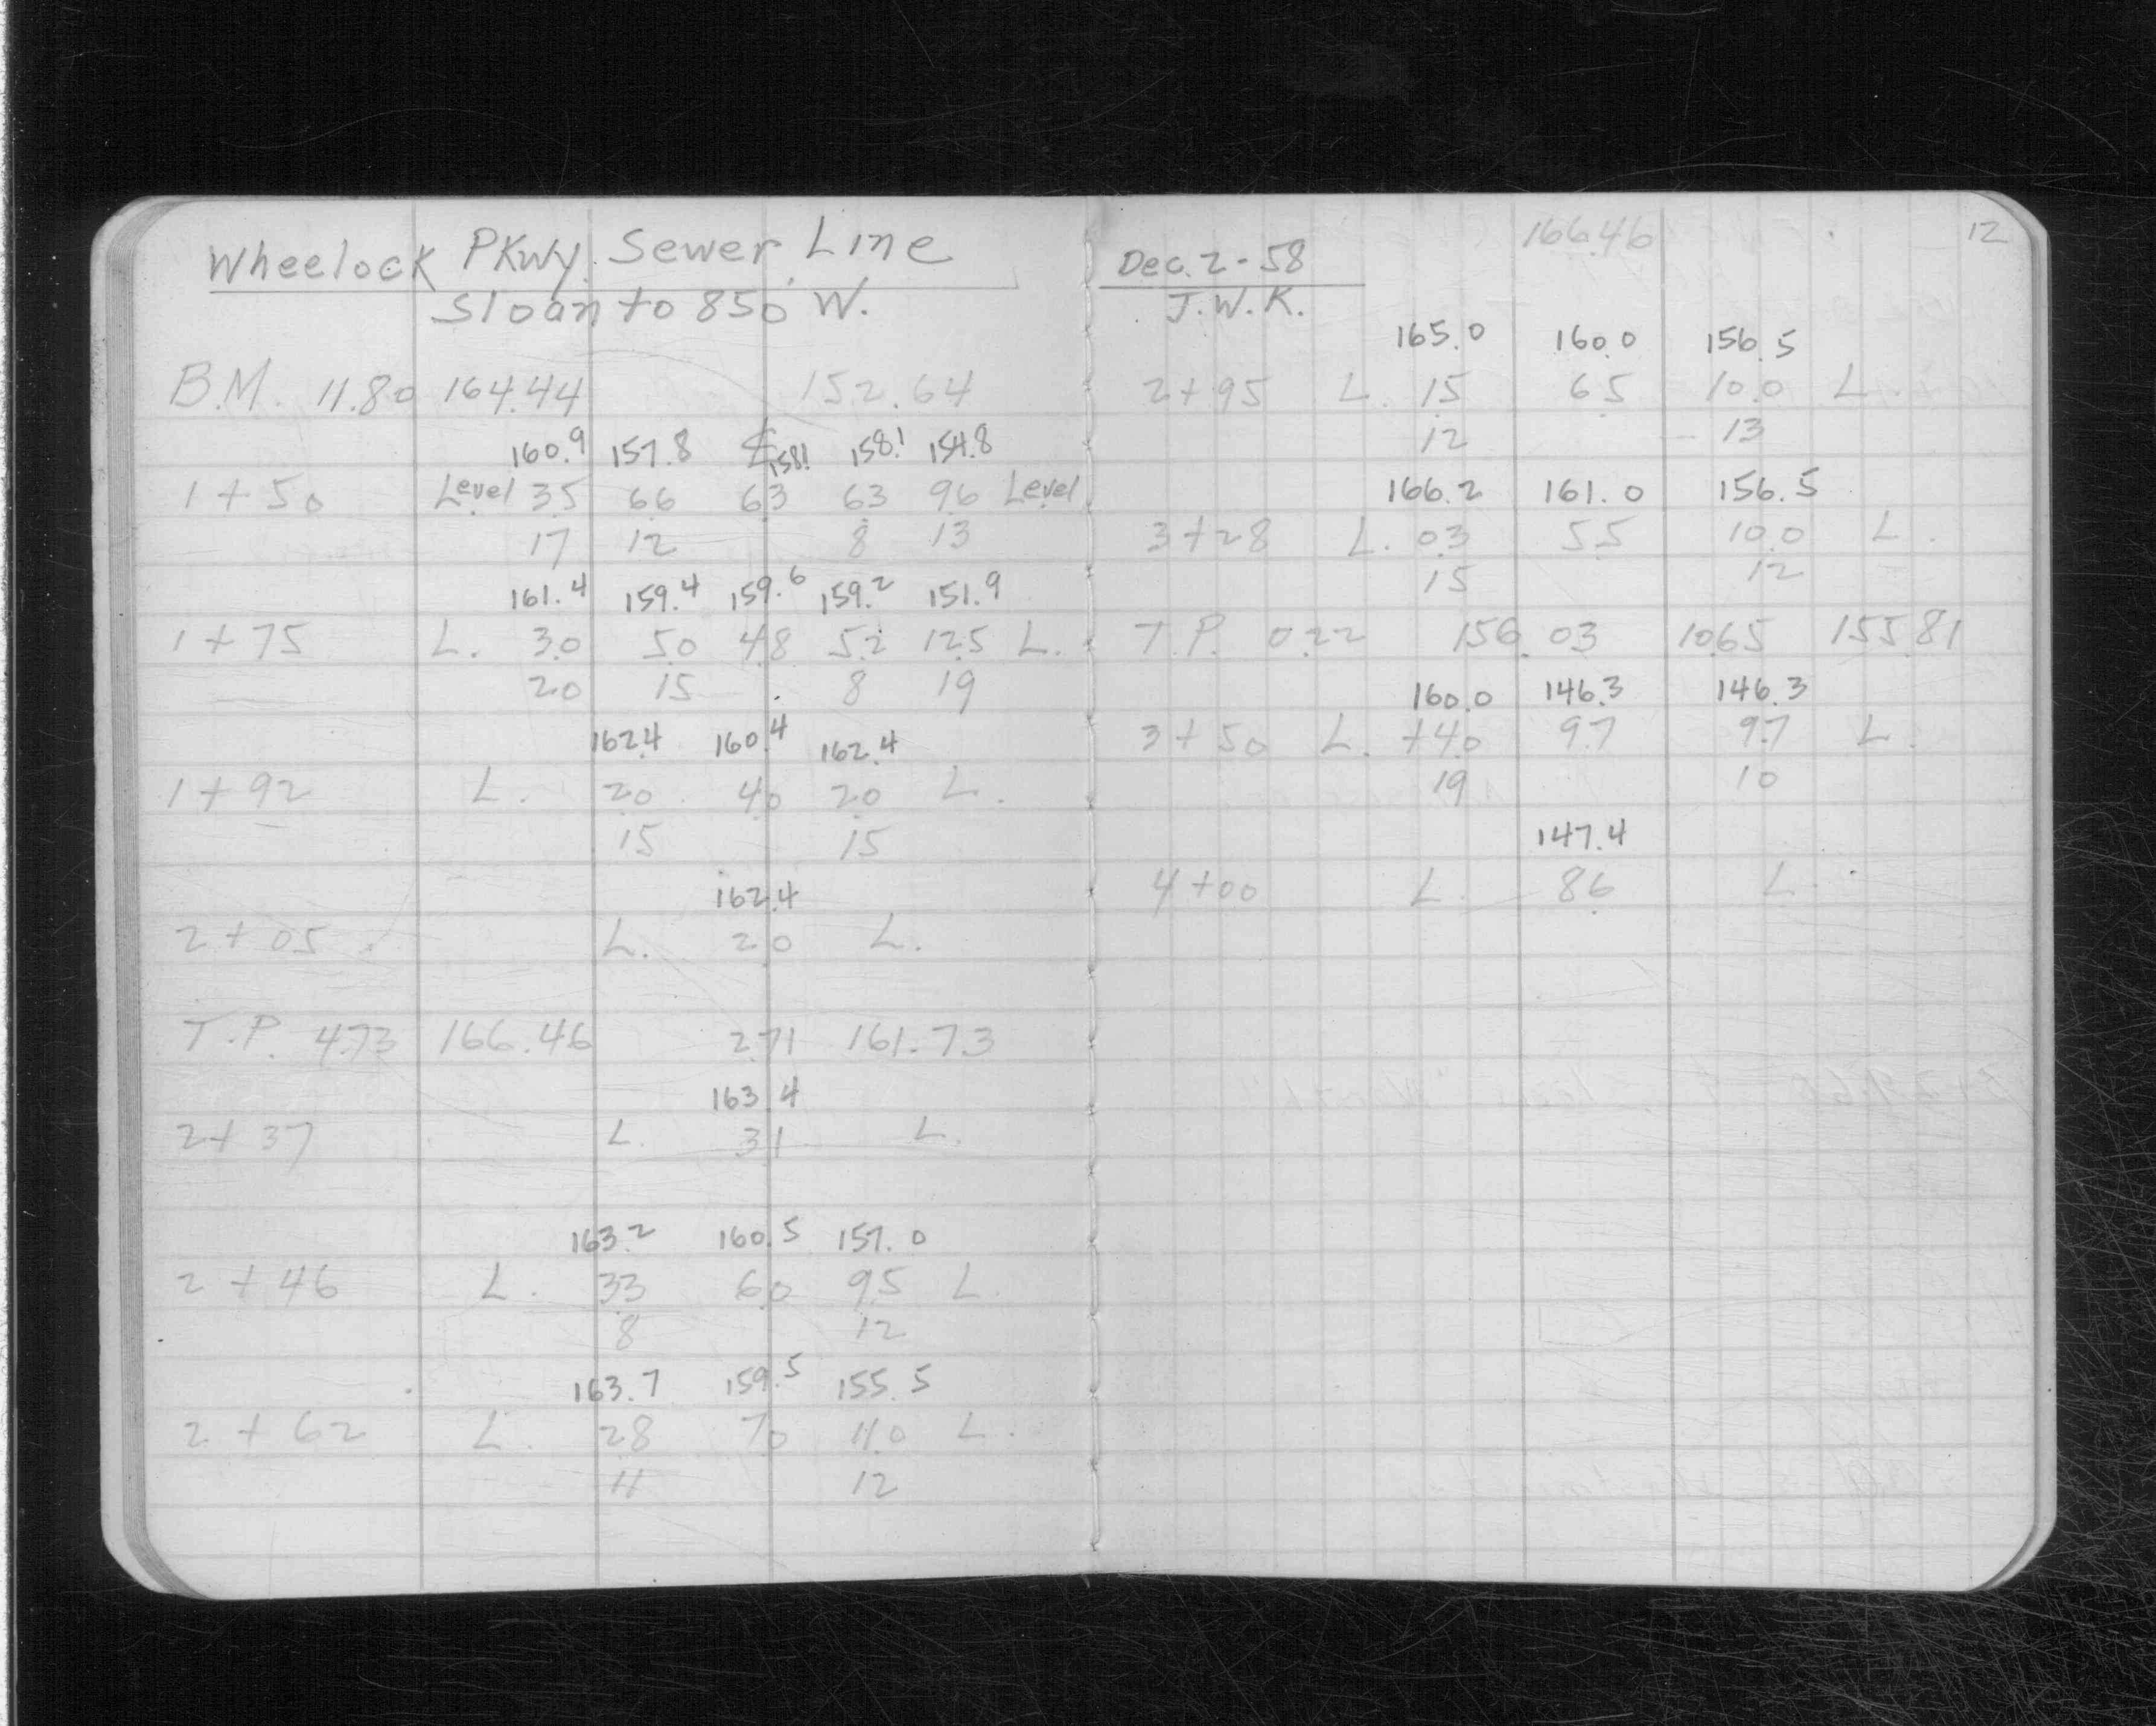 Wheelock PKwy. Sewer Line
Sloan to 850 W.
B.M. 11.80 164.44 152.64
160.9 157.8 ℄ 158.1 158.1 154.8
1+50 Level 3.5 6.6 6.3 6.3 9.6 Level
17 12 8 13
161.4 159.4 159.6 159.2 151.9
1+75 L. 3.0 5.0 4.8 5.2 12.5 L.
20 15 8 19
162.4 160.4 162.4
1+92 L. 2.0 4.0 2.0 L.
15 15
162.4
2+05 L. 2.0 L.
T.P. 4.73 166.46 2.71 161.73
163.4
2+37 L. 3.1 L.
163.2 160.5 157.0
2+46 L. 3.3 6.0 9.5 L.
8 12
163.7 159.5 155.5
2+62 L. 2.8 7.0 11.0 L.
11 12
166.46 12
Dec. 2-58
J.W.K.
165.0 160.0 156.5
2+95 L. 1.5 6.5 10.0 L.
12 13
166.2 161.0 156.5
3+28 L. 0.3 5.5 10.0 L.
15 12
T.P. 0.22 156.03 10.65 155.81
160.0 146.3 146.3
3+50 L. +4.0 9.7 9.7 L.
19 10
147.4
4+00 L. 8.6 L.